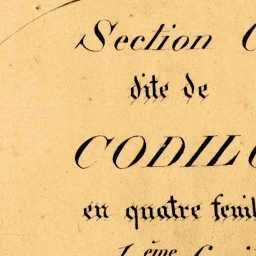 Section C
dite de
CODILO
en quatre feuil
1ème